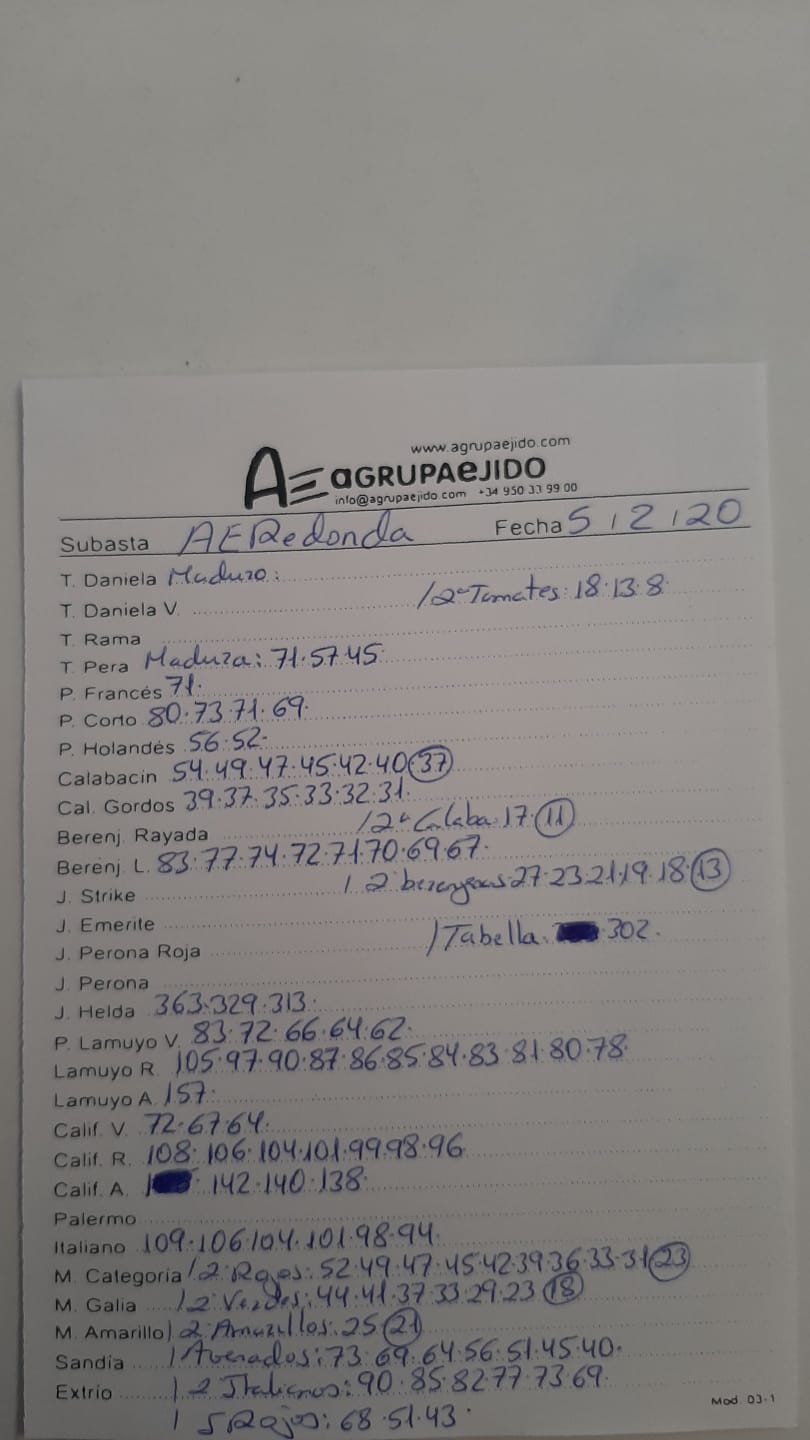 www.agrupaejido.com
AE aGRUPAeJIDO
info@agrupaejido.com +34 950 33 99 00
Subasta AERedonda Fecha 5/2/20
T. Daniela Maduro:
T. Daniela V. /2ª Tomates: 18.13.8
T. Rama
T. Pera Madura: 71.57.45
P. Francés 71.
P. Corto 80.73.71.69.
P. Holandés 56.52.
Calabacin 54.49.47.45.42.40 37
Cal. Gordos 39.37.35.33.32.31.
Berenj. Rayada /2ª Calaba. 17. 11
Berenj. L. 83.77.74.72.71.70.69.67.
J. Strike /2 berenjenas 27.23.21.19.18. 13
J. Emerite
J. Perona Roja /Tabella. 302.
J. Perona
J. Helda 363.329.313.
P. Lamuyo V. 83.72.66.64.62.
Lamuyo R. 105.97.90.87.86.85.84.83.81.80.78.
Lamuyo A. 157.
Calif. V. 72.67.64.
Calif. R. 108.106.104.101.99.98.96
Calif. A. 142.140.138.
Palermo
Italiano 109.106.104.101.98.94.
M. Categoria /2 Rojos: 52.49.47.45.42.39.36.33.31 23
M. Galia /2 Verdes: 44.41.37.33.29.23 18
M. Amarillo /2 Amarillos: 25 21
Sandía /Averados: 73.69.64.56.51.45.40.
Extrio /2 Italianos: 90.85.82.77.73.69.
Mod. 03-1
/5 Rojos: 68.51.43.